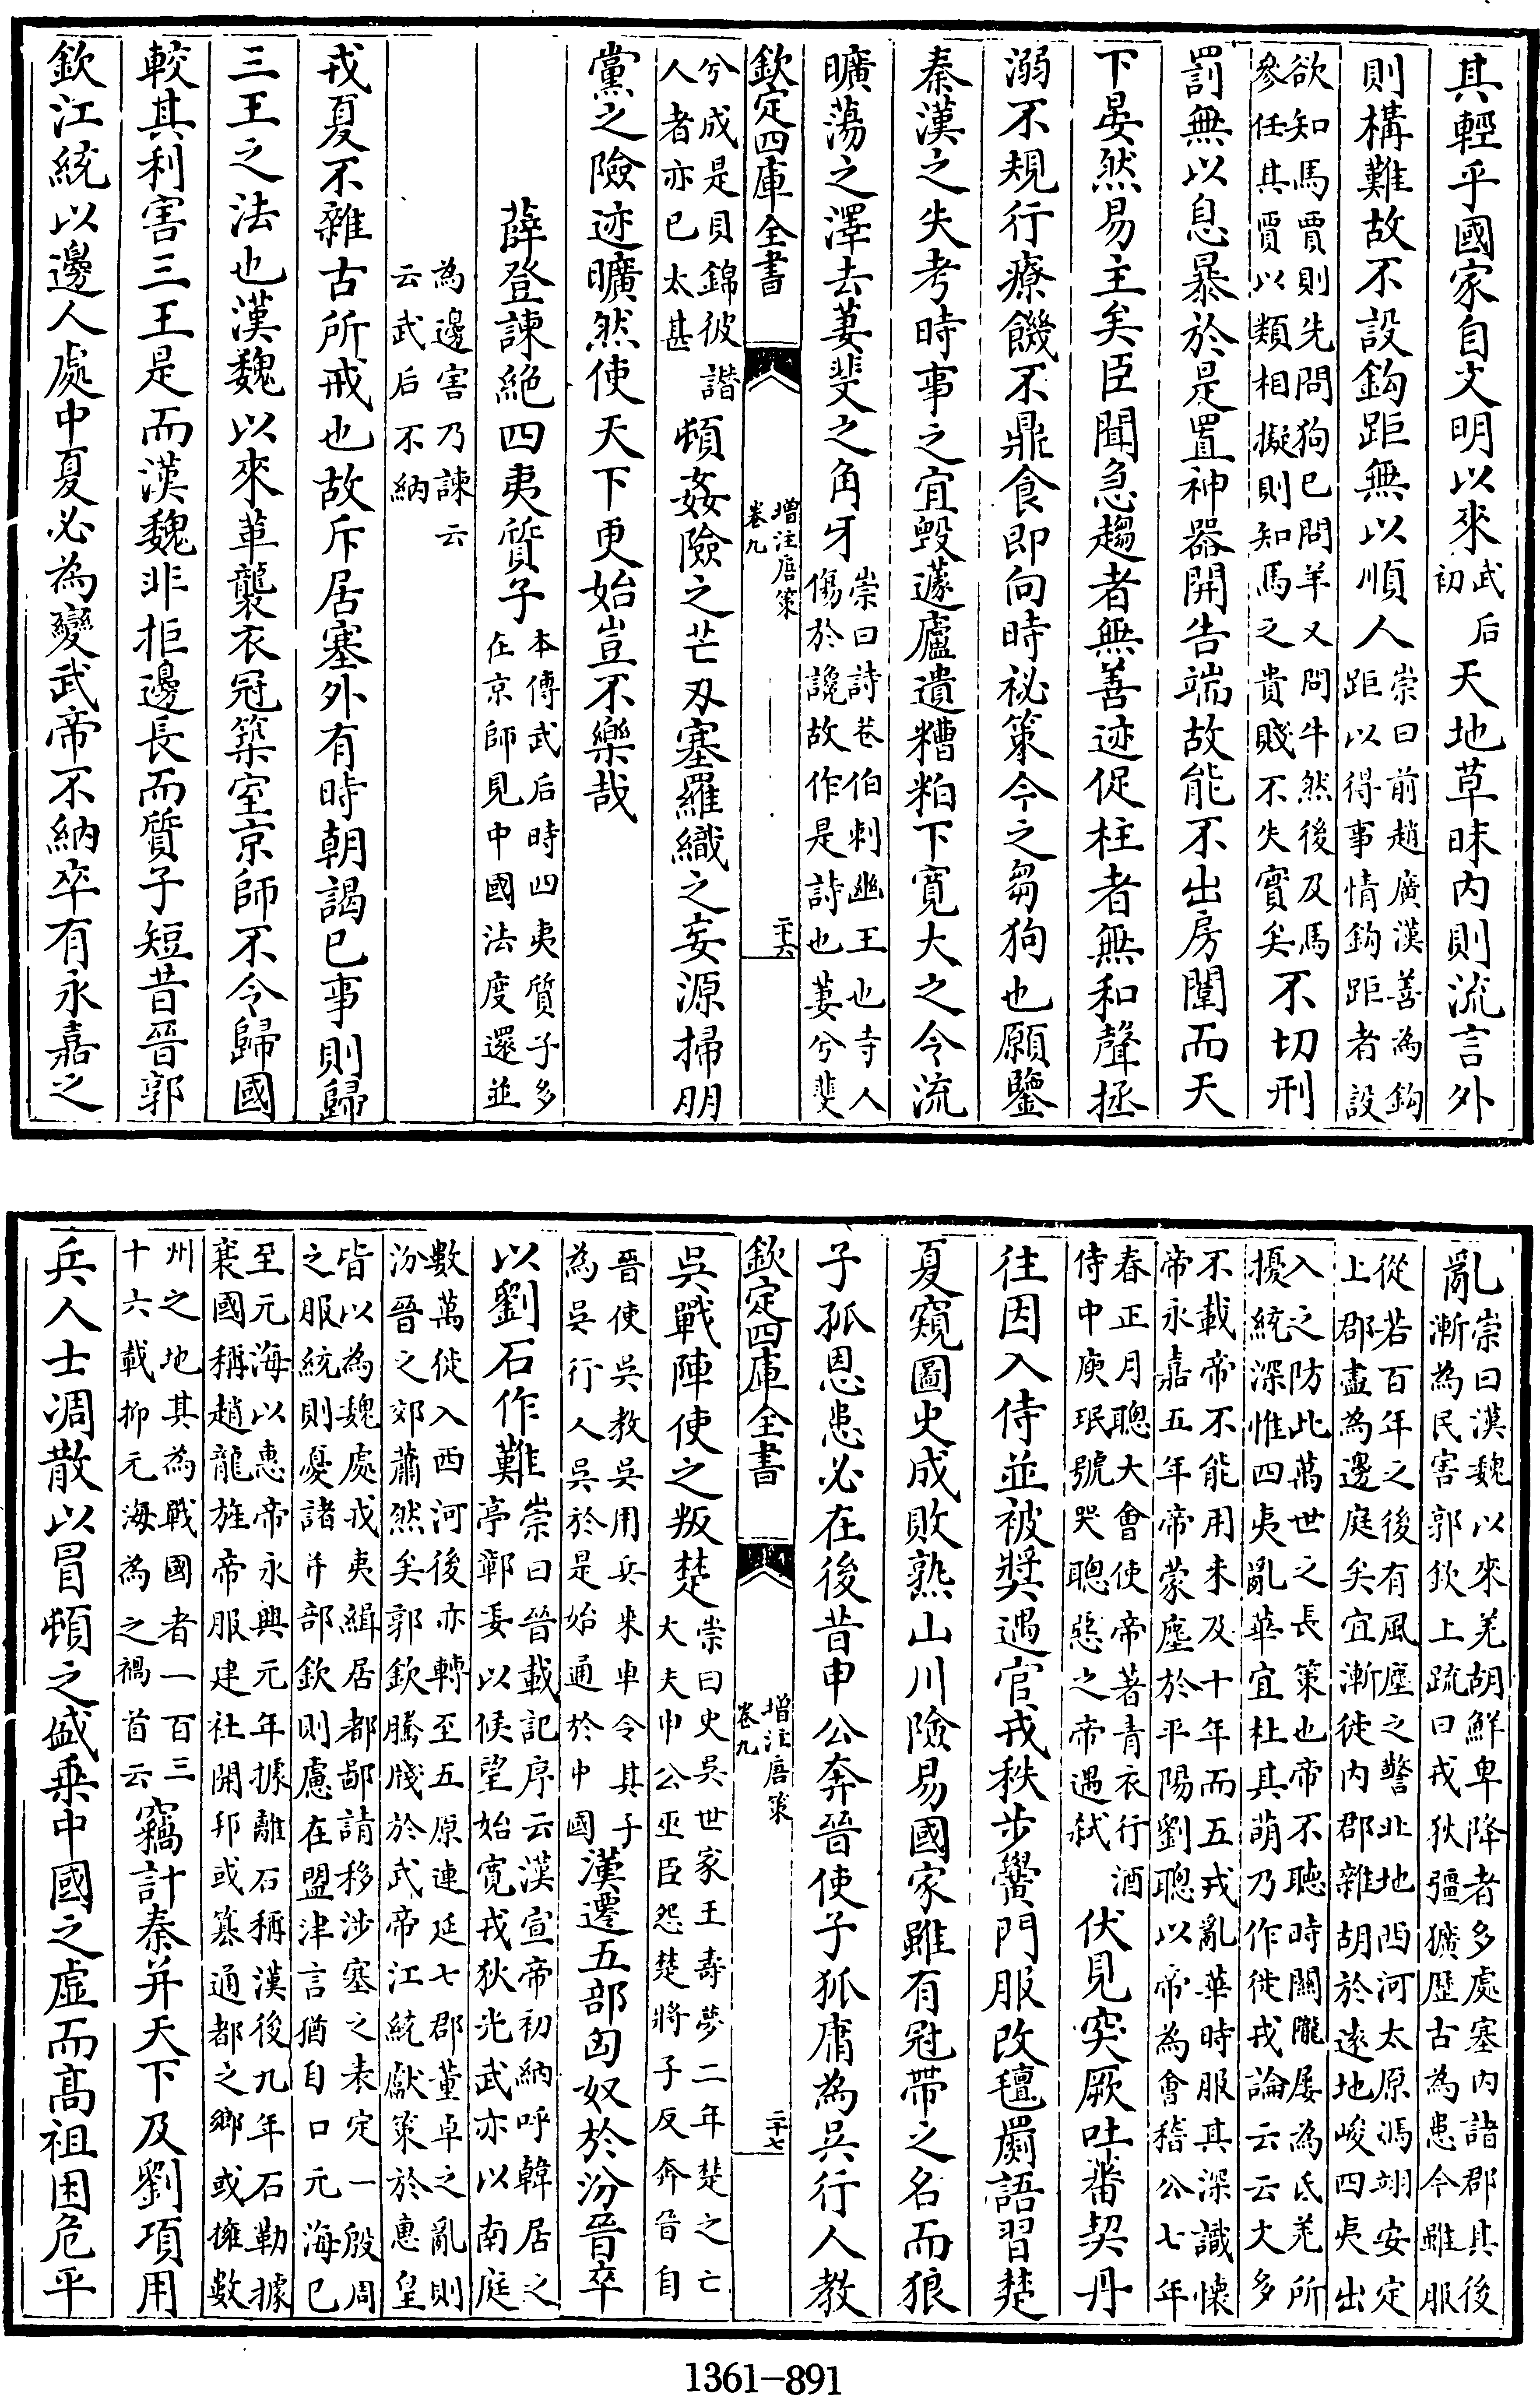 其輕乎國家自文明以來武后初天地草昧内則流言外
則構難故不設鈎距無以順人崇曰前趙廣漢善為鈎距以得事情鈎距者設
欲知馬賈則先問狗已問羊又問牛然後及馬參任其賈以類相擬則知馬之貴賤不失實矣不切刑
罰無以息暴於是置神器開告端故能不出房闈而天
下晏然易主矣臣聞急趨者無善迹促柱者無和聲拯
溺不規行療饑不鼎食即向時祕策今之芻狗也願鑒
秦漢之失考時事之宜毀蘧廬遺糟粕下寛大之令流
曠蕩之澤去萋斐之角牙崇曰詩巷伯刺幽王也寺人傷於讒故作是詩也萋兮斐
欽定四庫全書 增注唐策卷九 二十六
兮成是貝錦彼譖人者亦已太甚頓姦險之芒刃塞羅織之妄源掃朋
黨之險迹曠然使天下更始豈不樂哉
薛登諫絶四夷質子本傳武后時四夷質子多在京師見中國法度還並
為邊害乃諫云云武后不納
戎夏不雜古所戒也故斥居塞外有時朝謁已事則歸
三王之法也漢魏以來革襲衣冠築室京師不令歸國
較其利害三王是而漢魏非拒邊長而質子短昔晉郭
欽江統以邊人處中夏必為變武帝不納卒有永嘉之
亂崇曰漢魏以來羌胡鮮卑降者多處塞内諸郡其後漸為民害郭欽上疏曰戎狄彊獷歴古為患今雖服
從若百年之後有風塵之警北地西河太原馮翊安定上郡盡為邊庭矣宜漸徙内郡雜胡於遠地峻四夷出
入之防此萬世之長策也帝不聽時關隴屢為氐羌所擾統深惟四夷亂華宜杜其萌乃作徙戎論云云大多
不載帝不能用未及十年而五戎亂華時服其深識懷帝永嘉五年帝蒙塵於平陽劉聰以帝為會稽公七年
春正月聰大會使帝著青衣行酒侍中庾珉號哭聰惡之帝遇弑伏見突厥吐蕃契丹
往因入侍並被奬遇官戎秩步黌門服改氊罽語習楚
夏窺圖史成敗熟山川險易國家雖有冠帶之名而狼
子孤恩患必在後昔申公奔晉使子狐庸為吳行人教
欽定四庫全書 增注唐策卷九 二十七
吳戰陣使之叛楚崇曰史吳世家王壽夢二年楚之亡大夫申公巫臣怨楚將子反奔晉自
晉使吳教吳用兵來車令其子為吳行人吳於是始通於中國漢遷五部匈奴於汾晉卒
以劉石作難崇曰晉載記序云漢宣帝初納呼韓居之亭鄣委以候望始寛戎狄光武亦以南庭
數萬徙入西河後亦轉至五原連延七郡董卓之亂則汾晉之郊蕭然矣郭欽騰牋於武帝江統獻策於惠皇
皆以為魏處戎夷緝居都鄙請移沙塞之表定一殷周之服統則憂諸幷部欽則慮在盟津言猶自口元海已
至元海以惠帝永興元年據離石稱漢後九年石勒據襄國稱趙龍旌帝服建社開邦或篡通都之鄉或擁數
州之地其為戰國者一百三十六載抑元海為之禍首云竊計秦并天下及劉項用
兵人士凋散以冒頓之盛乗中國之虛而高祖困危平
1361-891